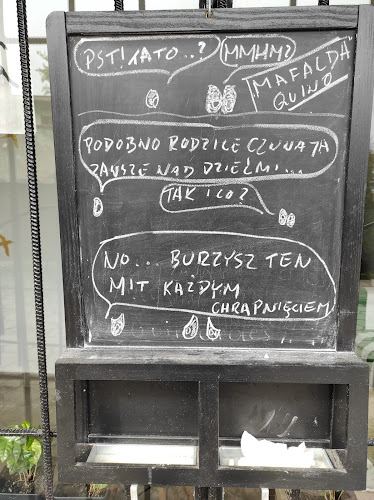 PST! TATO...?
MMHM?
MAFALDA
QUINO
PODOBNO RODZICE CZUWAJĄ
ZAWSZE NAD DZIEĆMI...
TAK I CO?
NO... BURZYSZ TEN
MIT KAŻDYM
CHRAPNIĘCIEM